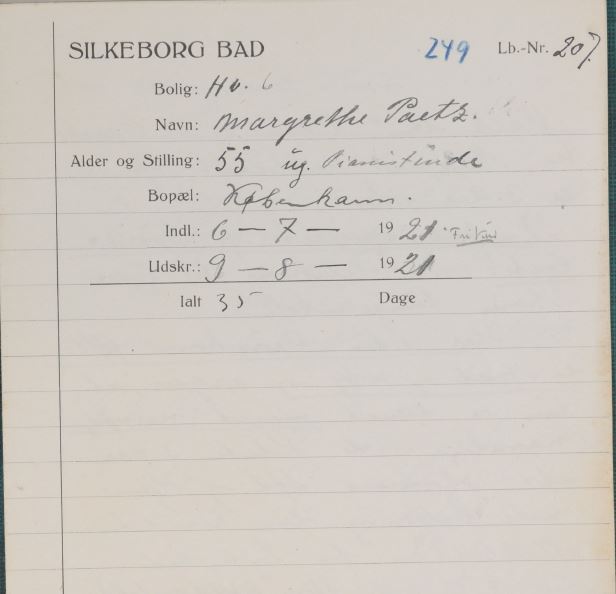 SILKEBORG BAD 249 Lb.-Nr. 207.
Bolig: Hv. 6
Navn: Margrethe Paetz.
Alder og Stilling: 55 ug. Pianistinde
Bopæl: København.
Indl.: 6 — 7 — 1921.
Udskr.: 9 — 8 — 1921
Ialt 35 Dage